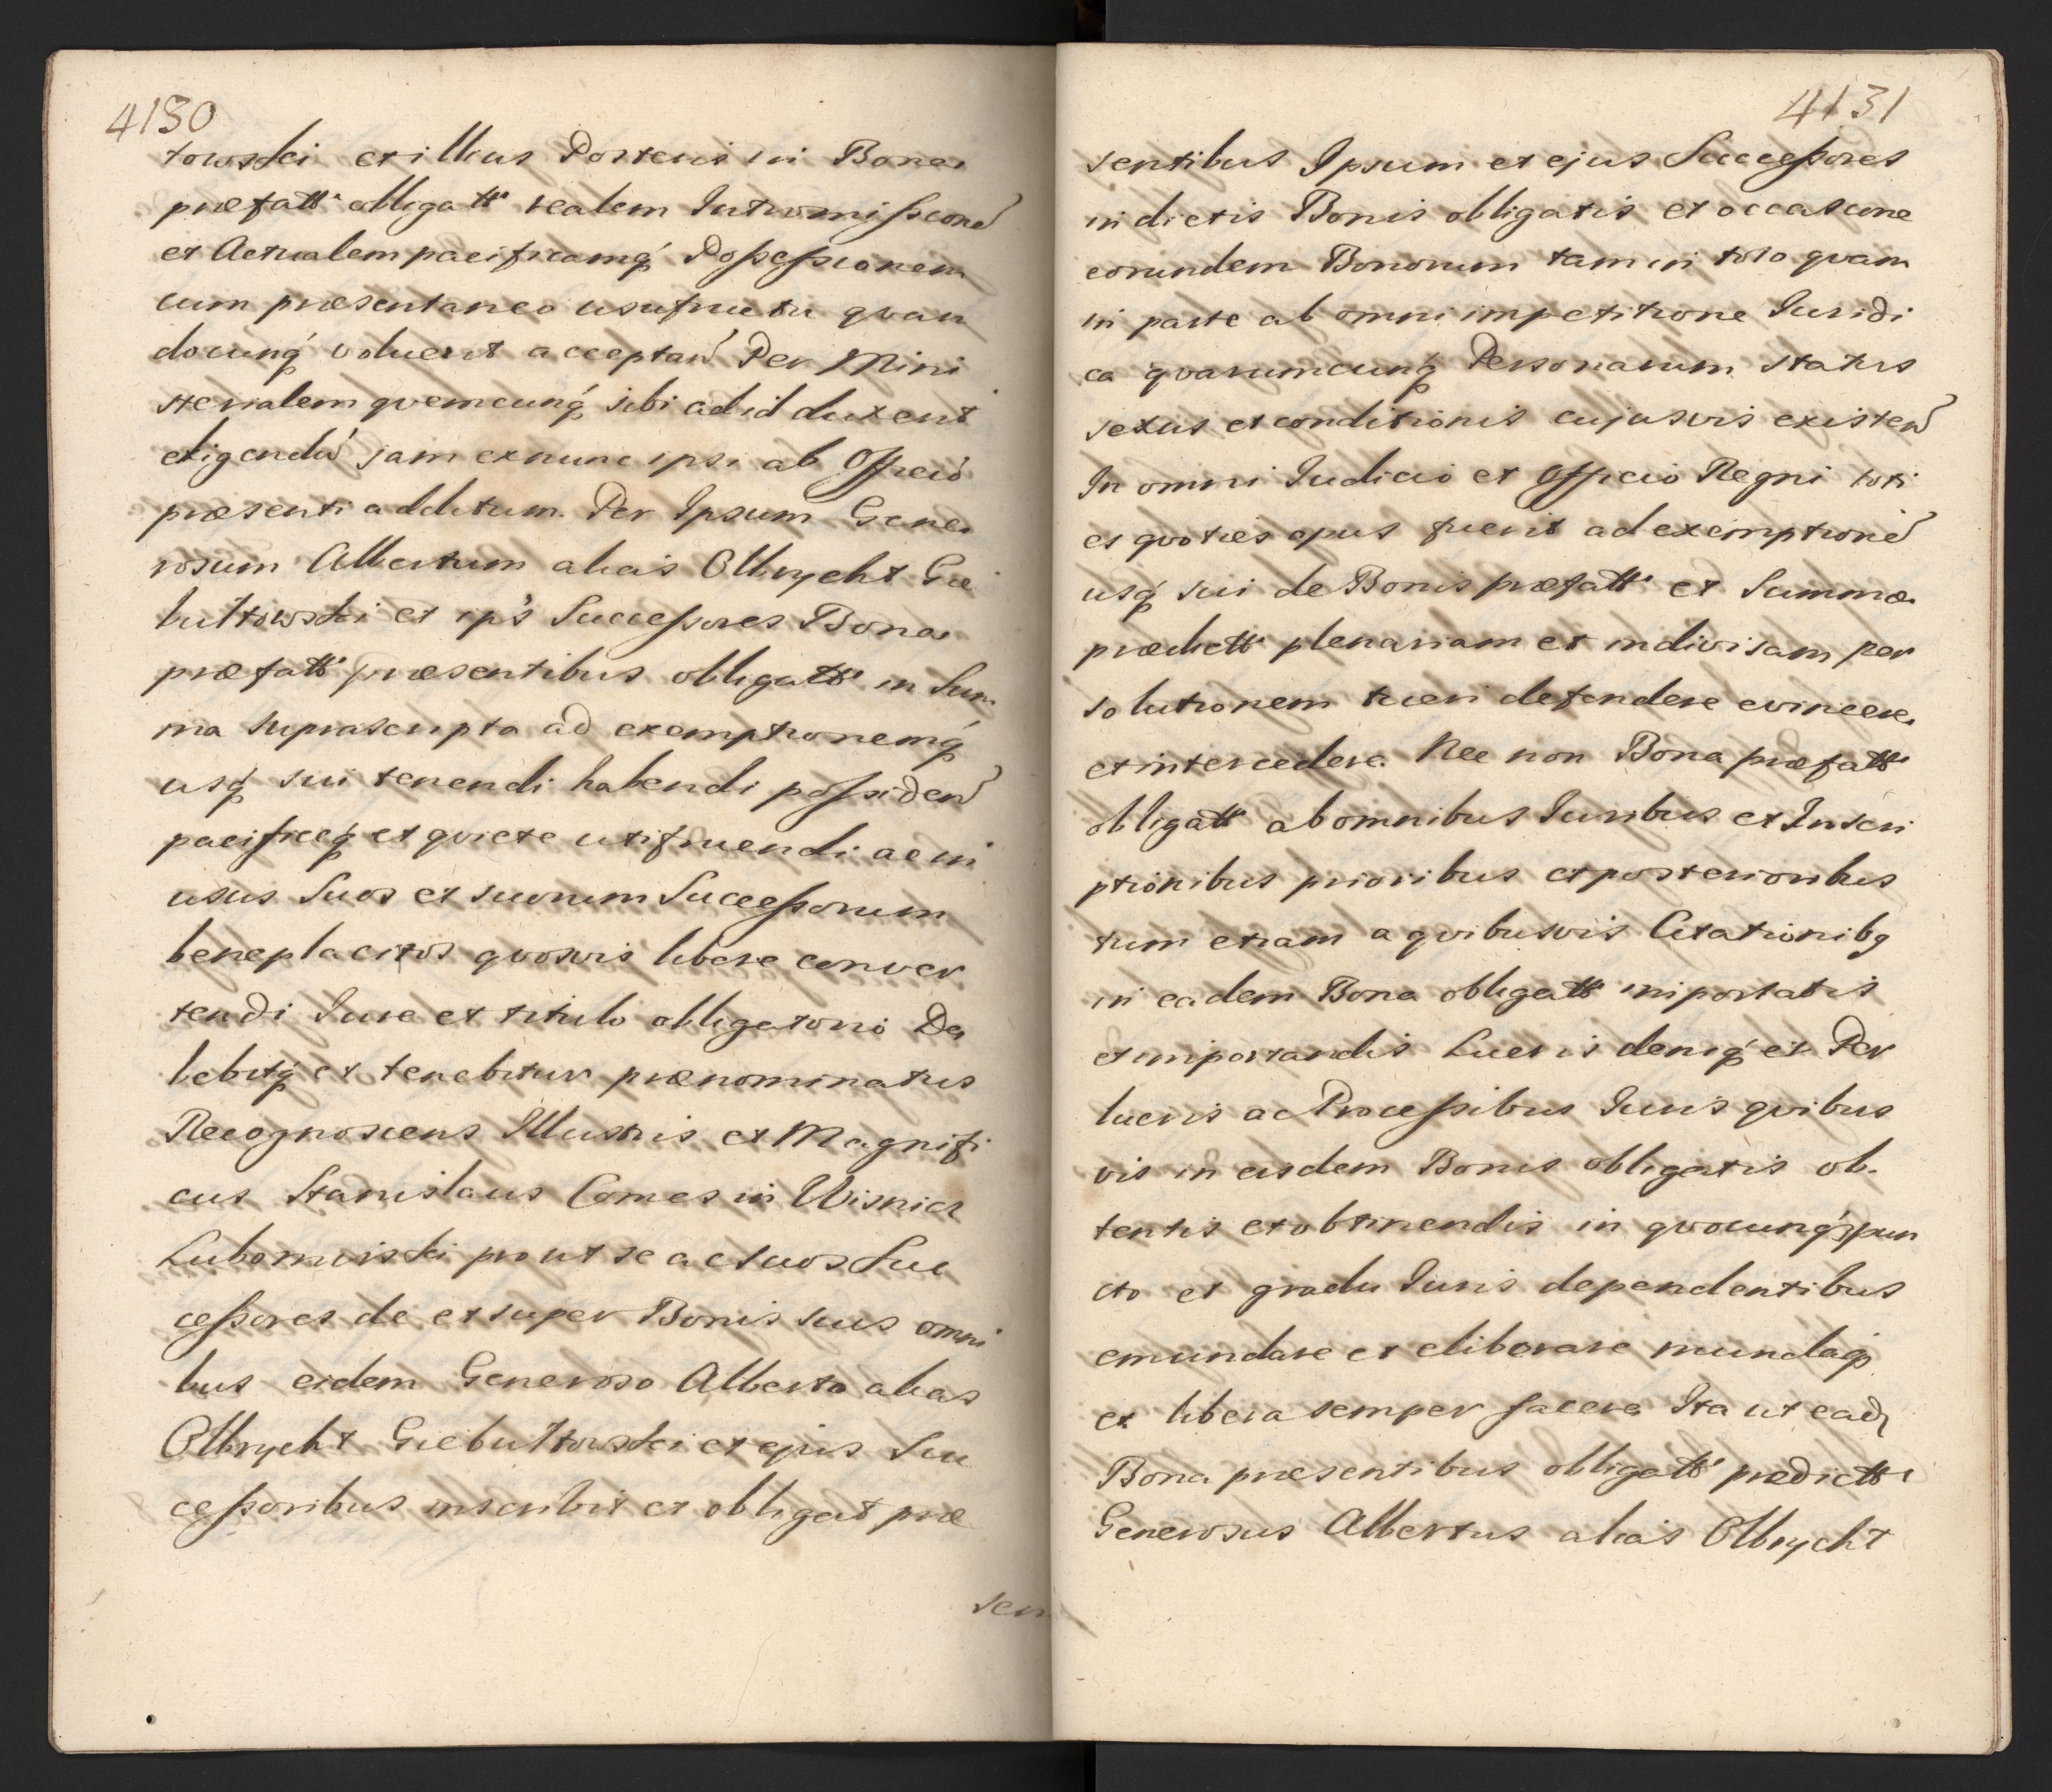 4130
towski et illius Posteris in Bona
præfatt obligatt realem Intromissione
et Actualem pacificamq́ Possessionem
cum præsentaneo usufructu qvan
docunq́ voluerit acceptan Per Mini
sterialem qvemcunq́ sibi ad id duxerit
eligendu jam exnunc ipsi ab Officio
præsenti additum. Per Ipsum Gene
rosum Albertum alias Olbrycht Gie
bułtowski et ips Successores Bona
præfatt præsentibus obligatt in Sum
ma suprascripta ad exemptionemq́
usq́ sui tenendi habendi possiden
pacificeq́ et qviete utifruendi ac in
usus Suos et suorum Successorum
beneplacitos qvosvis libere conver
tendi Iure et titulo obligatorio De
bebitq́ et tenebitur prænominatus
Recognoscens Illustris et Magnifi
cus Stanislaus Comes in Wisnicz
Lubomirski prout se ac suos Suc
cessores de et super Bonis suis omni
bus eidem Generoso Alberto alias
Olbrycht Giebułtowski et ejus Suc
cessoribus inscribit et obligat præ
sen
4131
sentibus Ipsum et ejus Successores
in dictis Bonis obligatis et occasione
eorundem Bonorum tam in toto qvam
in parte ab omni impetitione Iuridi
ca qvarumcunq́ Personarum status
sexus et conditionis cujusvis existen
In omni Iudicio et Officio Regni toti
es qvoties opus fuerit ad exemptione
usq́ sui de Bonis præfatt et Summæ
prædictt plenariam et indivisam per
solutionem tueri defendere evincere
et intercedere. Nec non Bona præfatt
obligatt ab omnibus Iuribus et Inscri
ptionibus prioribus et posterioribus
tum etiam a qvibusvis Citationibq
in eadem Bona obligatt importatis
et importandis Lucris deniq́ et Per
lucris ac Processibus Iuris qvibus
vis in eisdem Bonis obligatis ob
tentis et obtinendis in qvocunq́ pun
cto et gradu Iuris dependentibus
emundare et eliberare mundaq́
et libera semper facere Ita ut ead
Bona præsentibus obligatt prædictt
Generosus Albertus alias Olbrycht